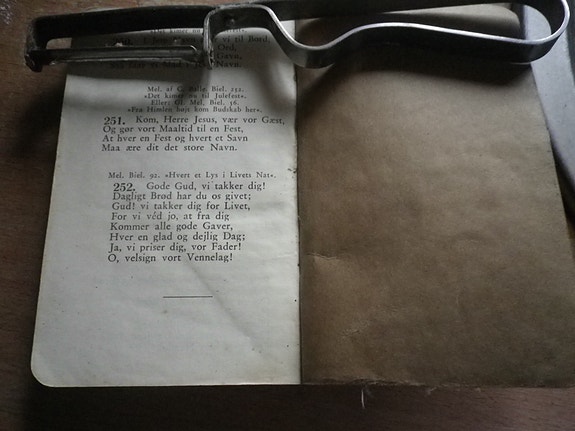 vi til Bord.
Ord,
Gavn,
Navn.
Mel. af C. Balle. Biel. 212.
»Det kimer nu til Julefest«.
Eller: Gl. Mel. Biel. 56.
»Fra Himlen højt kom Budskab her«.
251. Kom, Herre Jesus, vær vor Gæst,
Og gør vort Maaltid til en Fest,
At hver en Fest og hvert et Savn
Maa ære dit det store Navn.
Mel. Biel. 92. »Hvert et Lys i Livets Nat«.
252. Gode Gud, vi takker dig!
Dagligt Brød har du os givet;
Gud! vi takker dig for Livet,
For vi véd jo, at fra dig
Kommer alle gode Gaver,
Hver en glad og dejlig Dag;
Ja, vi priser dig, vor Fader!
O, velsign vort Vennelag!